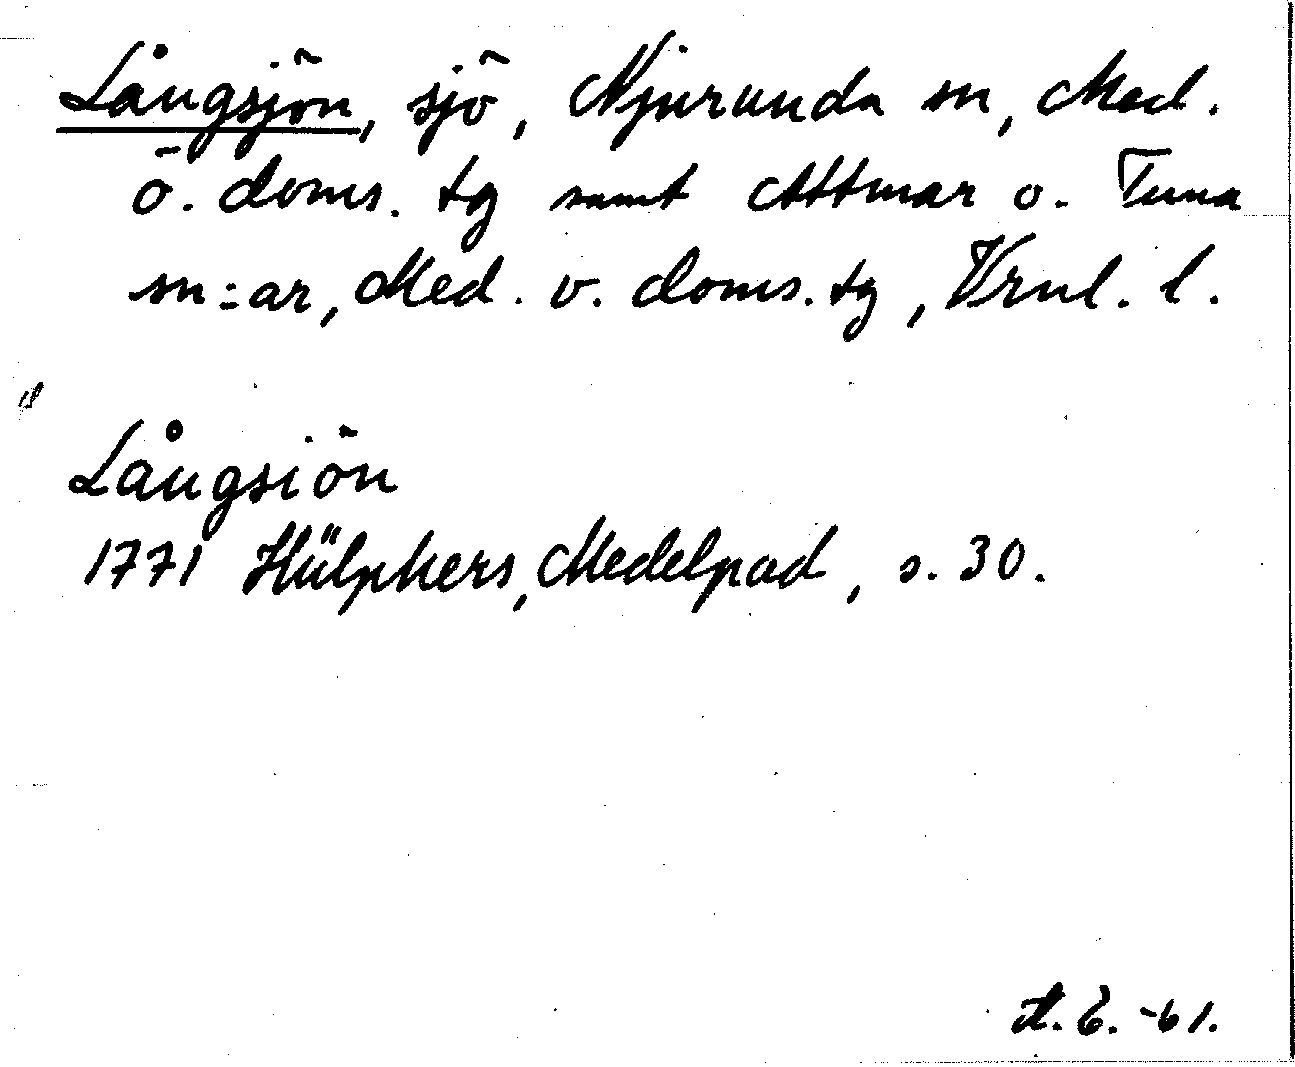 Långsjön, sjö, Njurunda sn, Med.
ö. doms. tg samt Attmar o. Tuna
sn:ar, Med. v. doms. tg, Vrnl. l.
Långsiön
1771 Hülphers, Medelpad, s. 30.
-61.